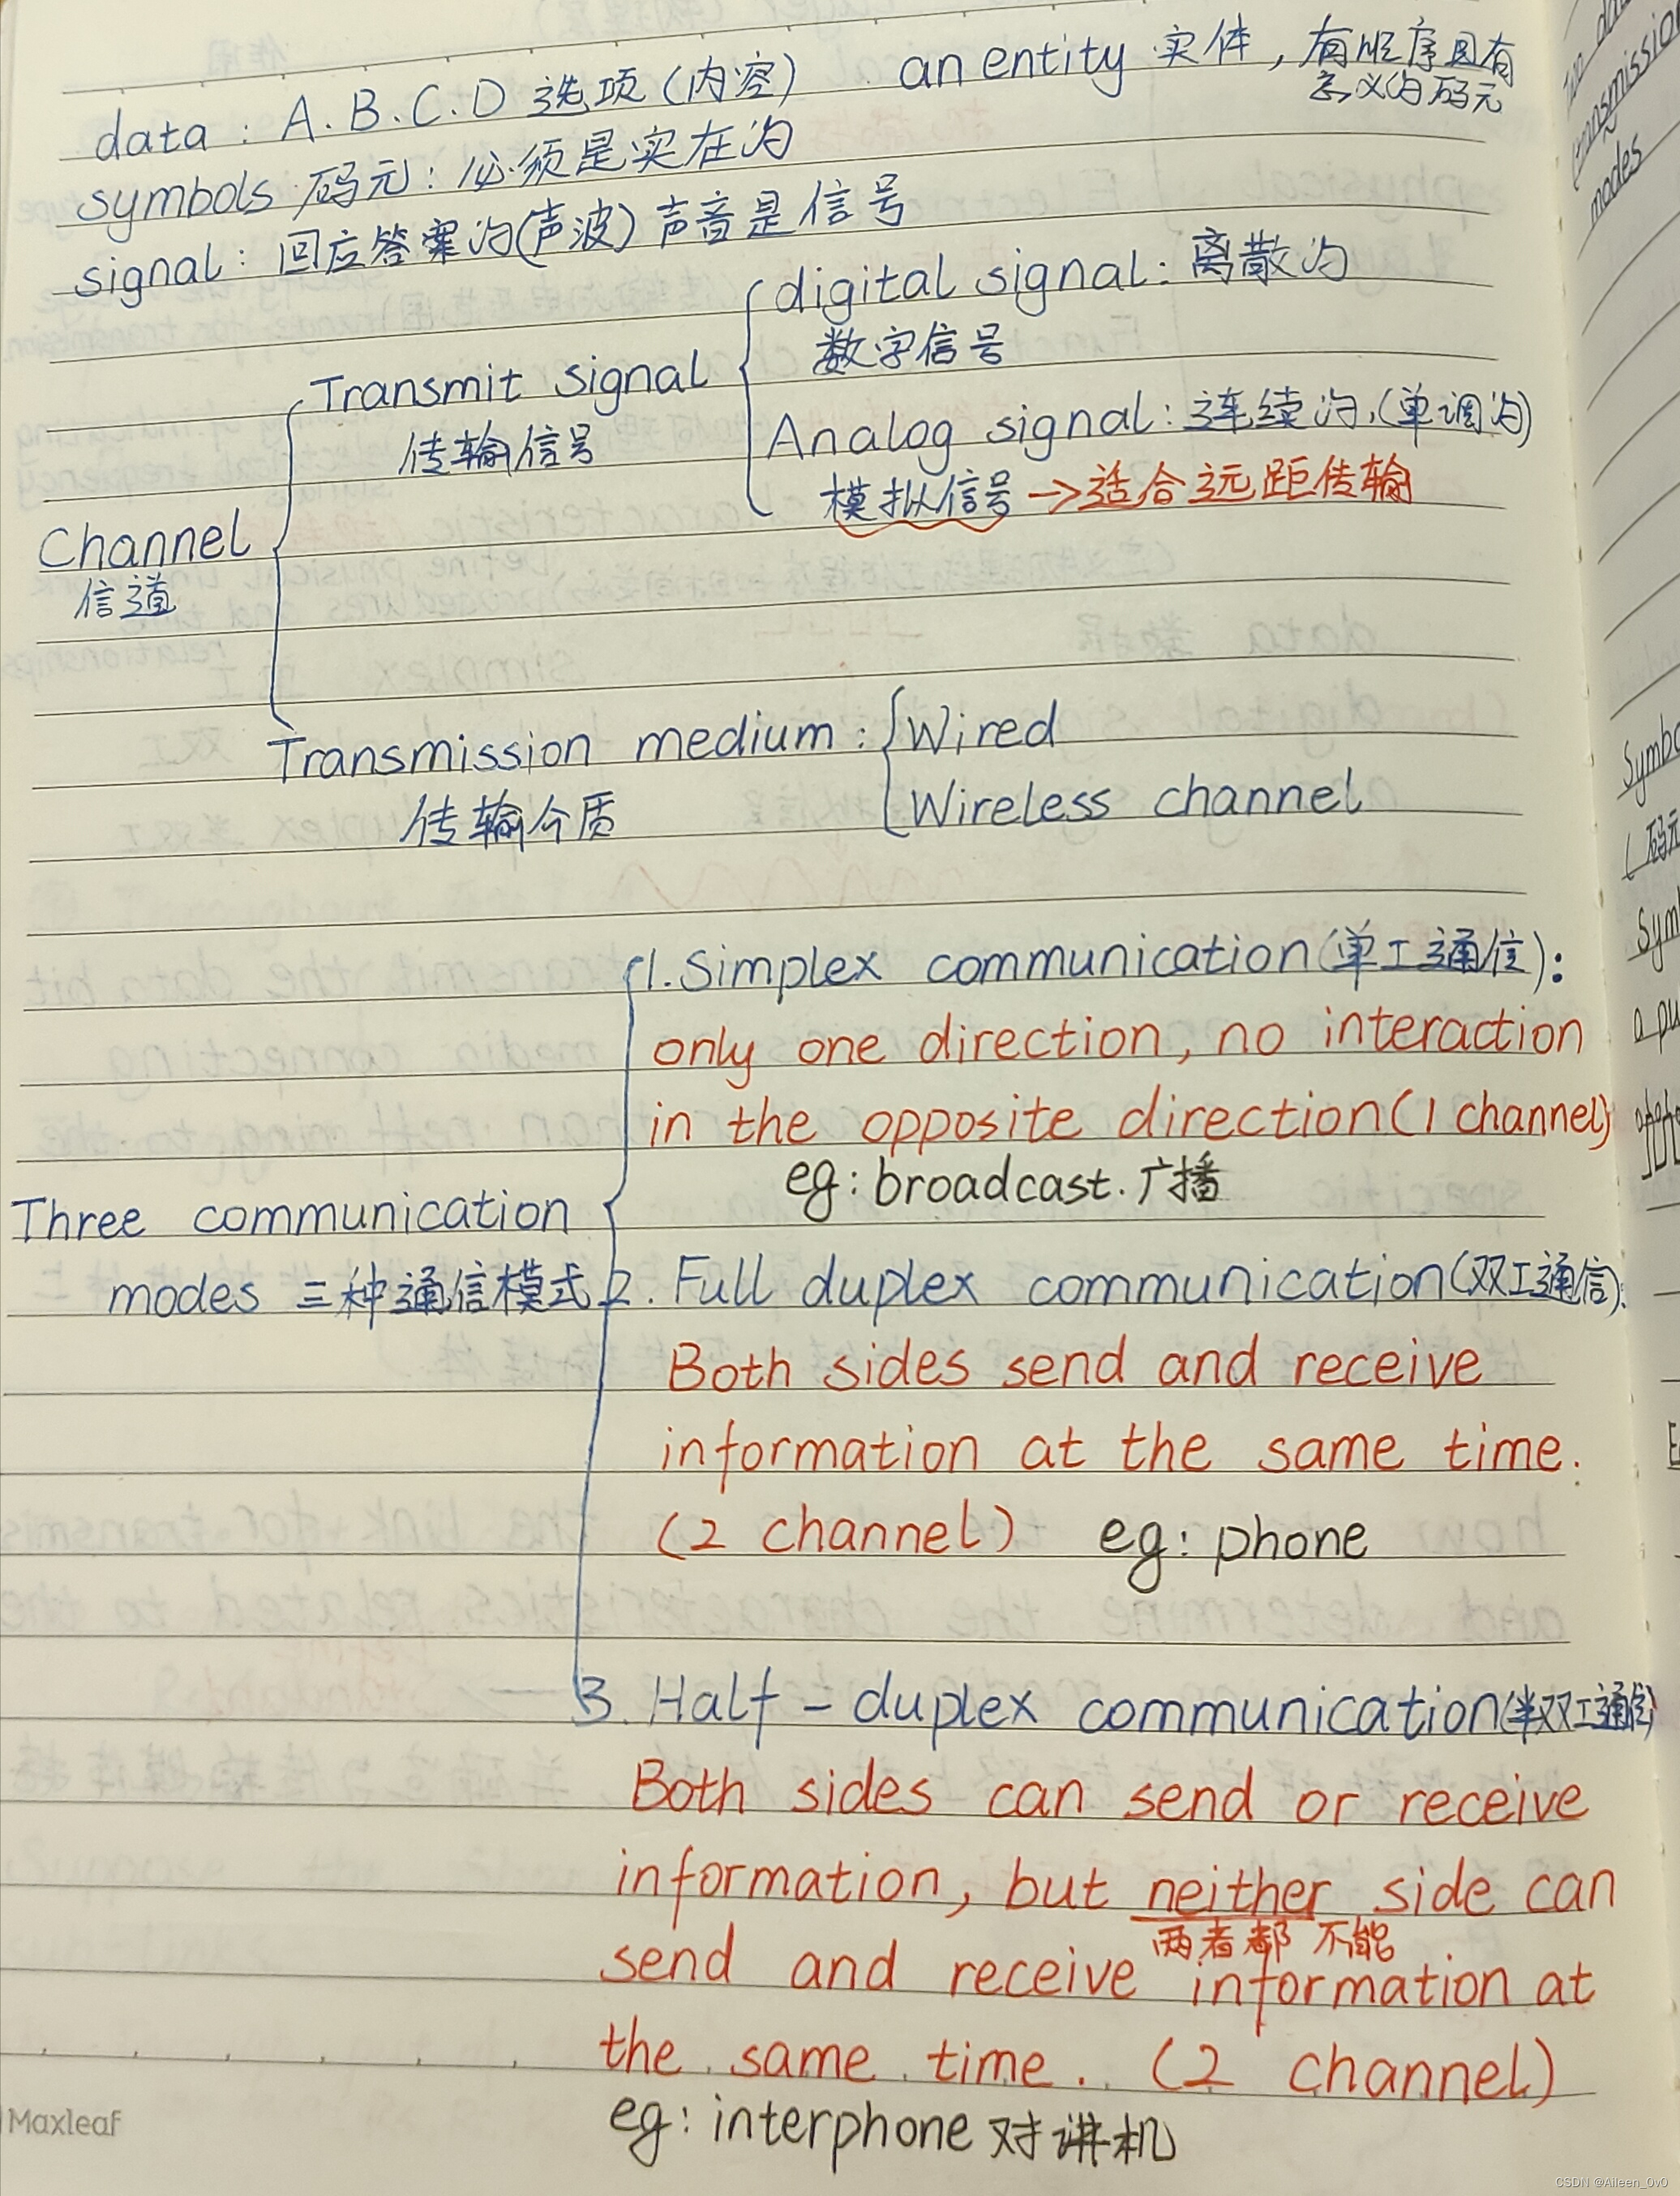 data : A.B.C.D 选项(内容) an entity 实体,有顺序且有
意义的码元
symbols 码元:必须是实在的
signal: 回应答案的(声波)声音是信号
digital signal: 离散的
数字信号
Transmit signal
传输信号
Analog signal: 连续的,(单调的)
模拟信号→适合远距传输
Channel
信道
Transmission medium : Wired
传输介质
Wireless channel
1. Simplex communication(单工通信):
only one direction, no interaction
in the opposite direction(1 channel)
eg: broadcast. 广播
Three communication
modes 三种通信模式
2. Full duplex communication(双工通信):
Both sides send and receive
information at the same time.
(2 channel) eg: phone
3. Half - duplex communication(半双工通信)
Both sides can send or receive
information, but neither side can
两者都不能
send and receive information at
the same time. (2 channel)
eg: interphone 对讲机
Maxleaf
modes
CSDN @Aileen_0v0